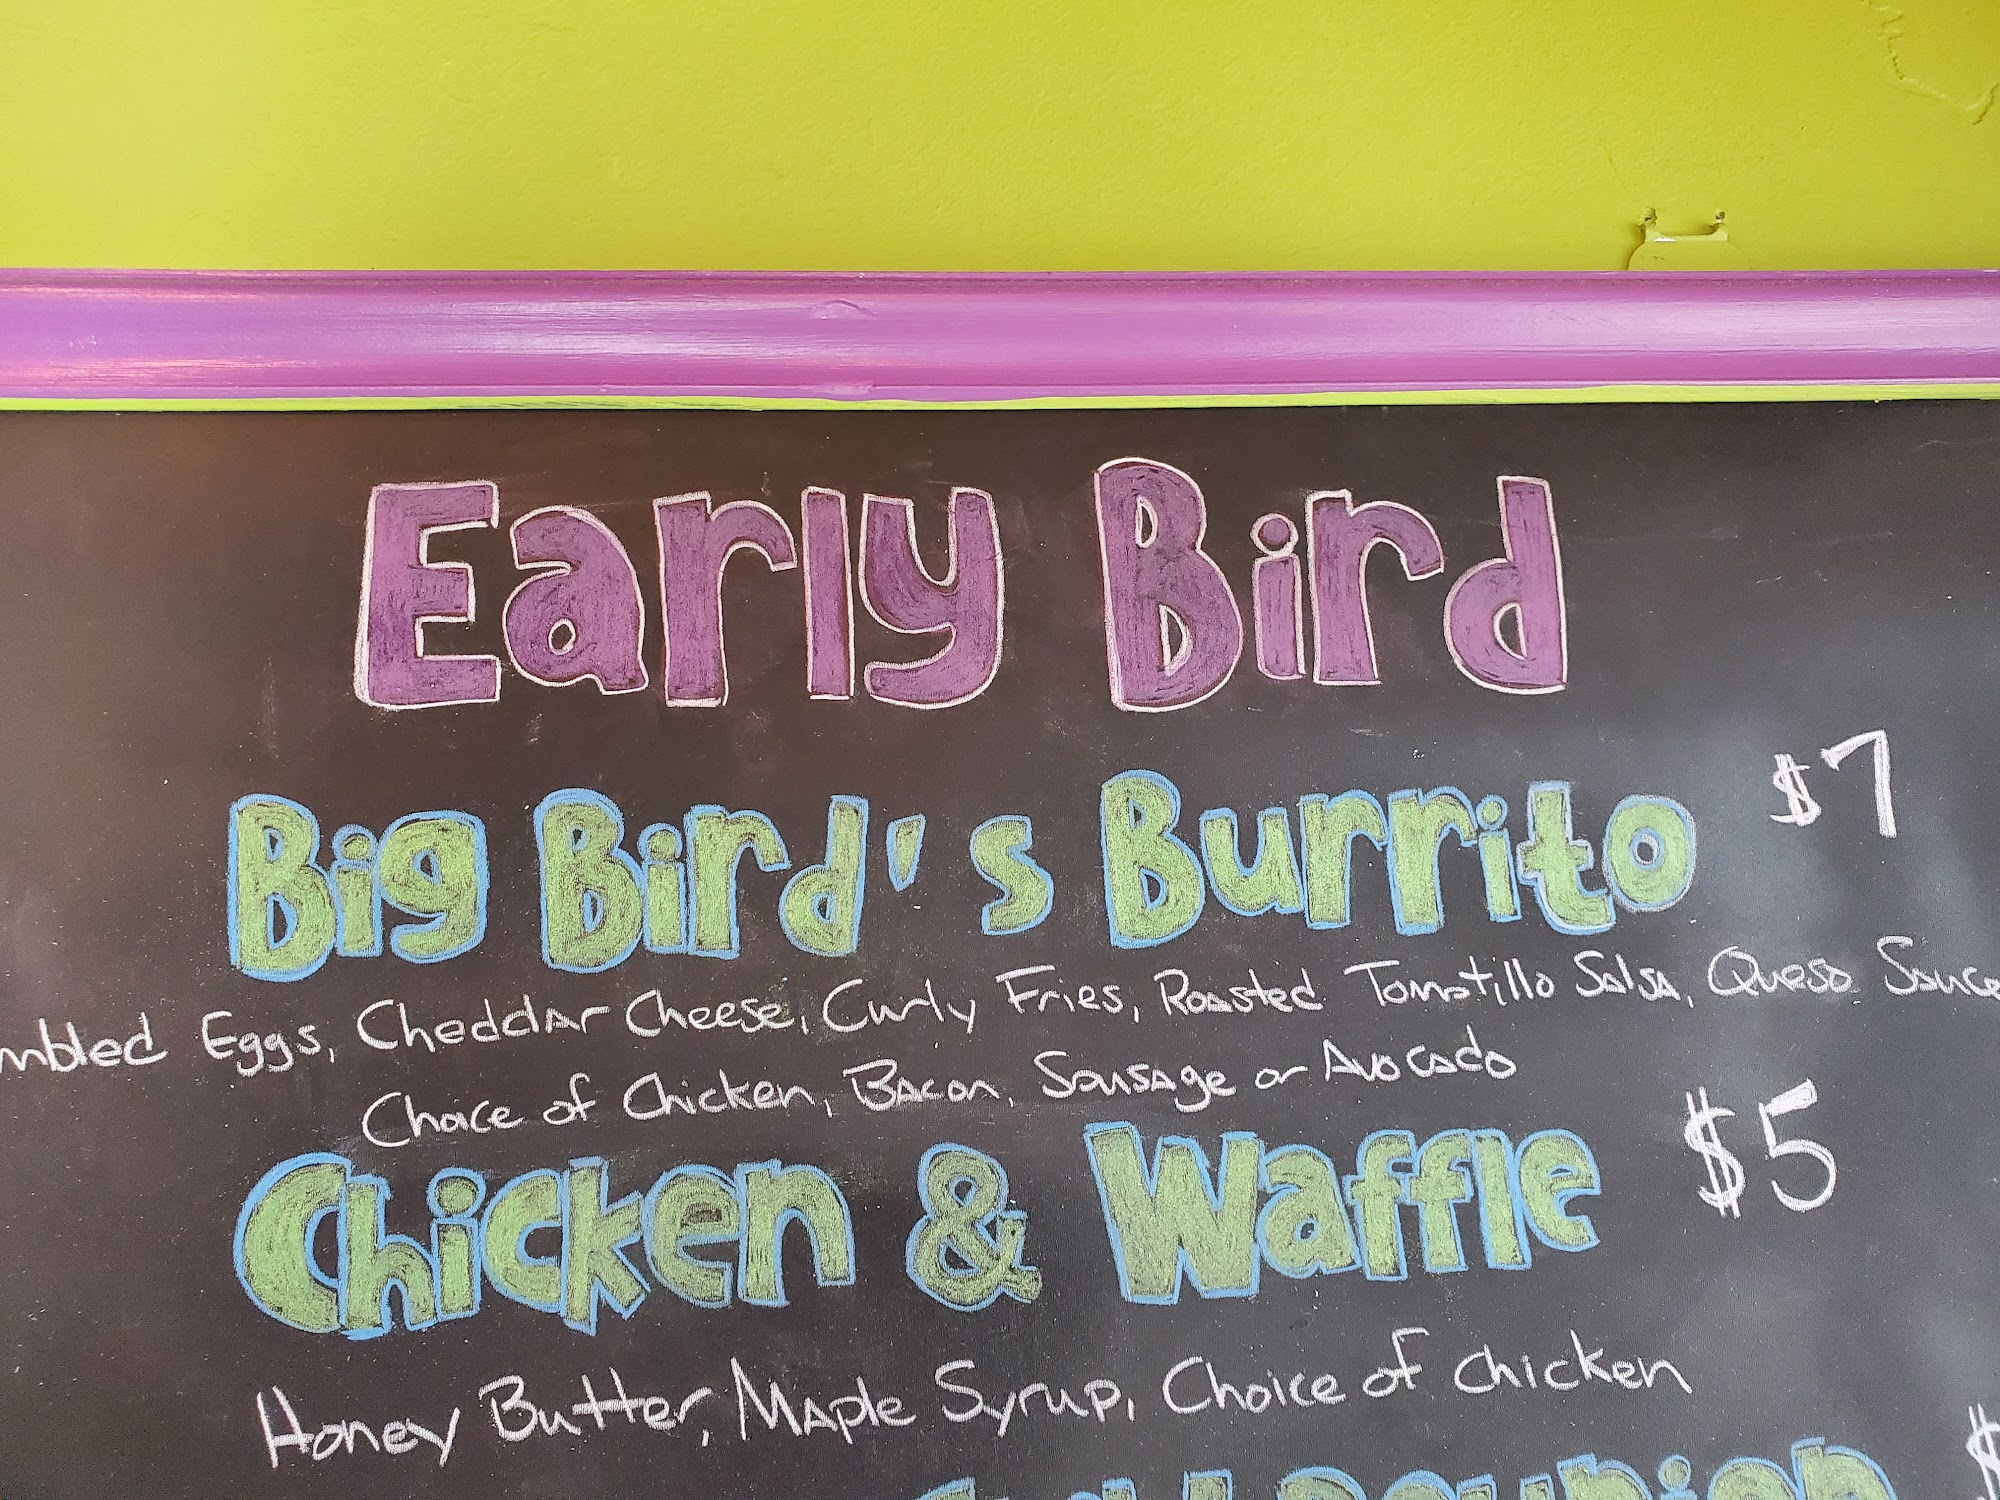 Early Bird
Big Bird's Burrito $7
Eggs, Cheddar Cheese, Curly Fries, Roasted Tomatillo Salsa, Queso Sauce
Choice of Chicken, Bacon, Sausage or Avocado
Chicken & Waffle $5
Honey Butter, Maple Syrup, Choice of Chicken